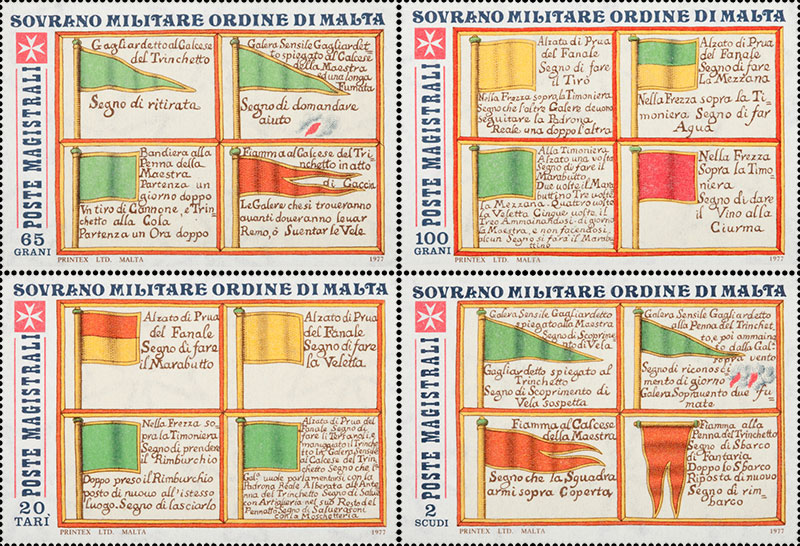 SOVRANO MILITARE ORDINE DI MALTA
POSTE MAGISTRALI
65
GRANI
Gagliardetto al Calcese
del Trinchetto
Segno di ritirata
Galera Sensile Gagliardet
to spiegato al Calcese
della Maestra
ed una longa
Fumata
Segno di domandare
aiuto
Bandiera alla
Penna della
Maestra
Partenza un
giorno doppo
Vn tiro di Cannone, e Trin
chetto alla Cola
Partenza un Ora doppo
Fiamma al Calcese del Trin
chetto in atto
di Caccia
Le Galere che si troueranno
auanti doueranno leuar
Remo, ò Suentar le Vele
PRINTEX LTD. MALTA
1977
SOVRANO MILITARE ORDINE DI MALTA
POSTE MAGISTRALI
100
GRANI
Alzata di Prua
del Fanale
Segno di fare
il Tirò
Nella Frezza sopra la Timoniera
Segno che l'altre Galere deuono
Seguitare la Padrona
Reale una doppo l'altra
Alzato di Prua
del Fanale
Segno di fare
La Mezzana
Nella Frezza sopra la Ti
moniera Segno di far
Agua
Alla Timoniera
Alzato una volta
Segno di fare il
Marabutto
Due uolte il Mara
buttino Tre uolte
la Mezzana. Quattro uolte
la Veletta Cinque uolte, il
Treo Ammainandosi di giorno
la Maestra, e non facendosi,
alcun Segno si farà il Marabut
tino
Nella Frezza
Sopra la Timo
niera
Segno di dare
il Vino alla
Ciurma
PRINTEX LTD. MALTA
1977
SOVRANO MILITARE ORDINE DI MALTA
POSTE MAGISTRALI
20
TARÌ
Alzato di Prua
del Fanale
Segno di fare
il Marabutto
Alzato di Prua
del Fanale
Segno di fare
la Veletta
Nella Frezza so
pra la Timoniera
Segno di prendere
il Rimburchio
Doppo preso il Rimburchio
posto di nuouo all'istesso
luogo. Segno di lasciarlo
Alzato di Prua del
Fanale Segno di
fare li Tersaroli, e
maniogato il Trinchet
to In Galera Sensile
al Calcese del Trin
chetto Segno che la
Gal.ª uuole parlamentare con la
Padrona Reale Alberata all'Ante
nna del Trinchetto Segno di Salue
con Artiglieria nel sud Resto del
Pennotto Segno di Salueratoni
con la Moschetteria
PRINTEX LTD. MALTA
1977
SOVRANO MILITARE ORDINE DI MALTA
POSTE MAGISTRALI
2
SCUDI
Galera Sensile Gagliardetto
spiegato alla Maestra
Segno di Scoprime
nto di Vela
Gagliardetto spiegato al
Trinchetto
Segno di Scoprimento di
Vela sospetta
Galera Sensile Gagliardetto
alla Penna del Trinchet
to, e poi ammaina
to dalla Gal.ª
sopra vento
Segno di riconosci
mento di giorno
Galera Soprauento due fu
mate
Fiamma al Calcese
della Maestra
Segno che la Squadra
armi sopra Coperta
Fiamma alla
Penna del Trinchetto
Segno di Sbarco
di Fantaria
Doppo lo Sbarco
Riposta di nuouo
Segno di rim
barco
PRINTEX LTD. MALTA
1977